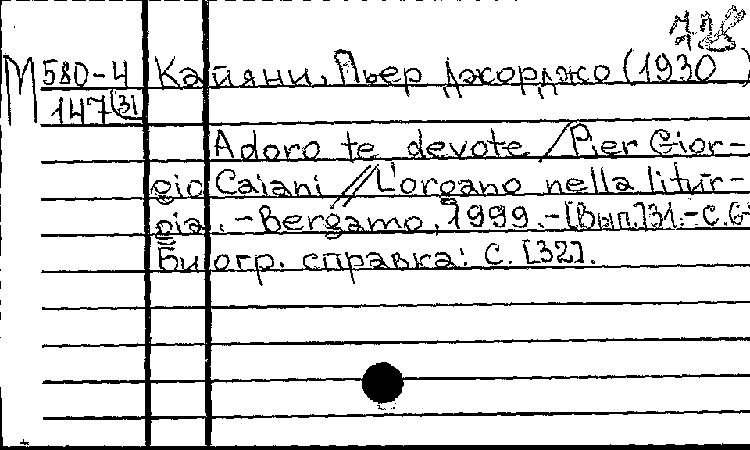 М 580-4 Кайяни, Пьер Джорджо (1930
147(31
Adoro te devote / Pier Gior-
gio Caiani // L'organo nella litur-
gia. - Bergamo, 1999. - [Вып.]31. - С.
Биогр. справка: С. [32].